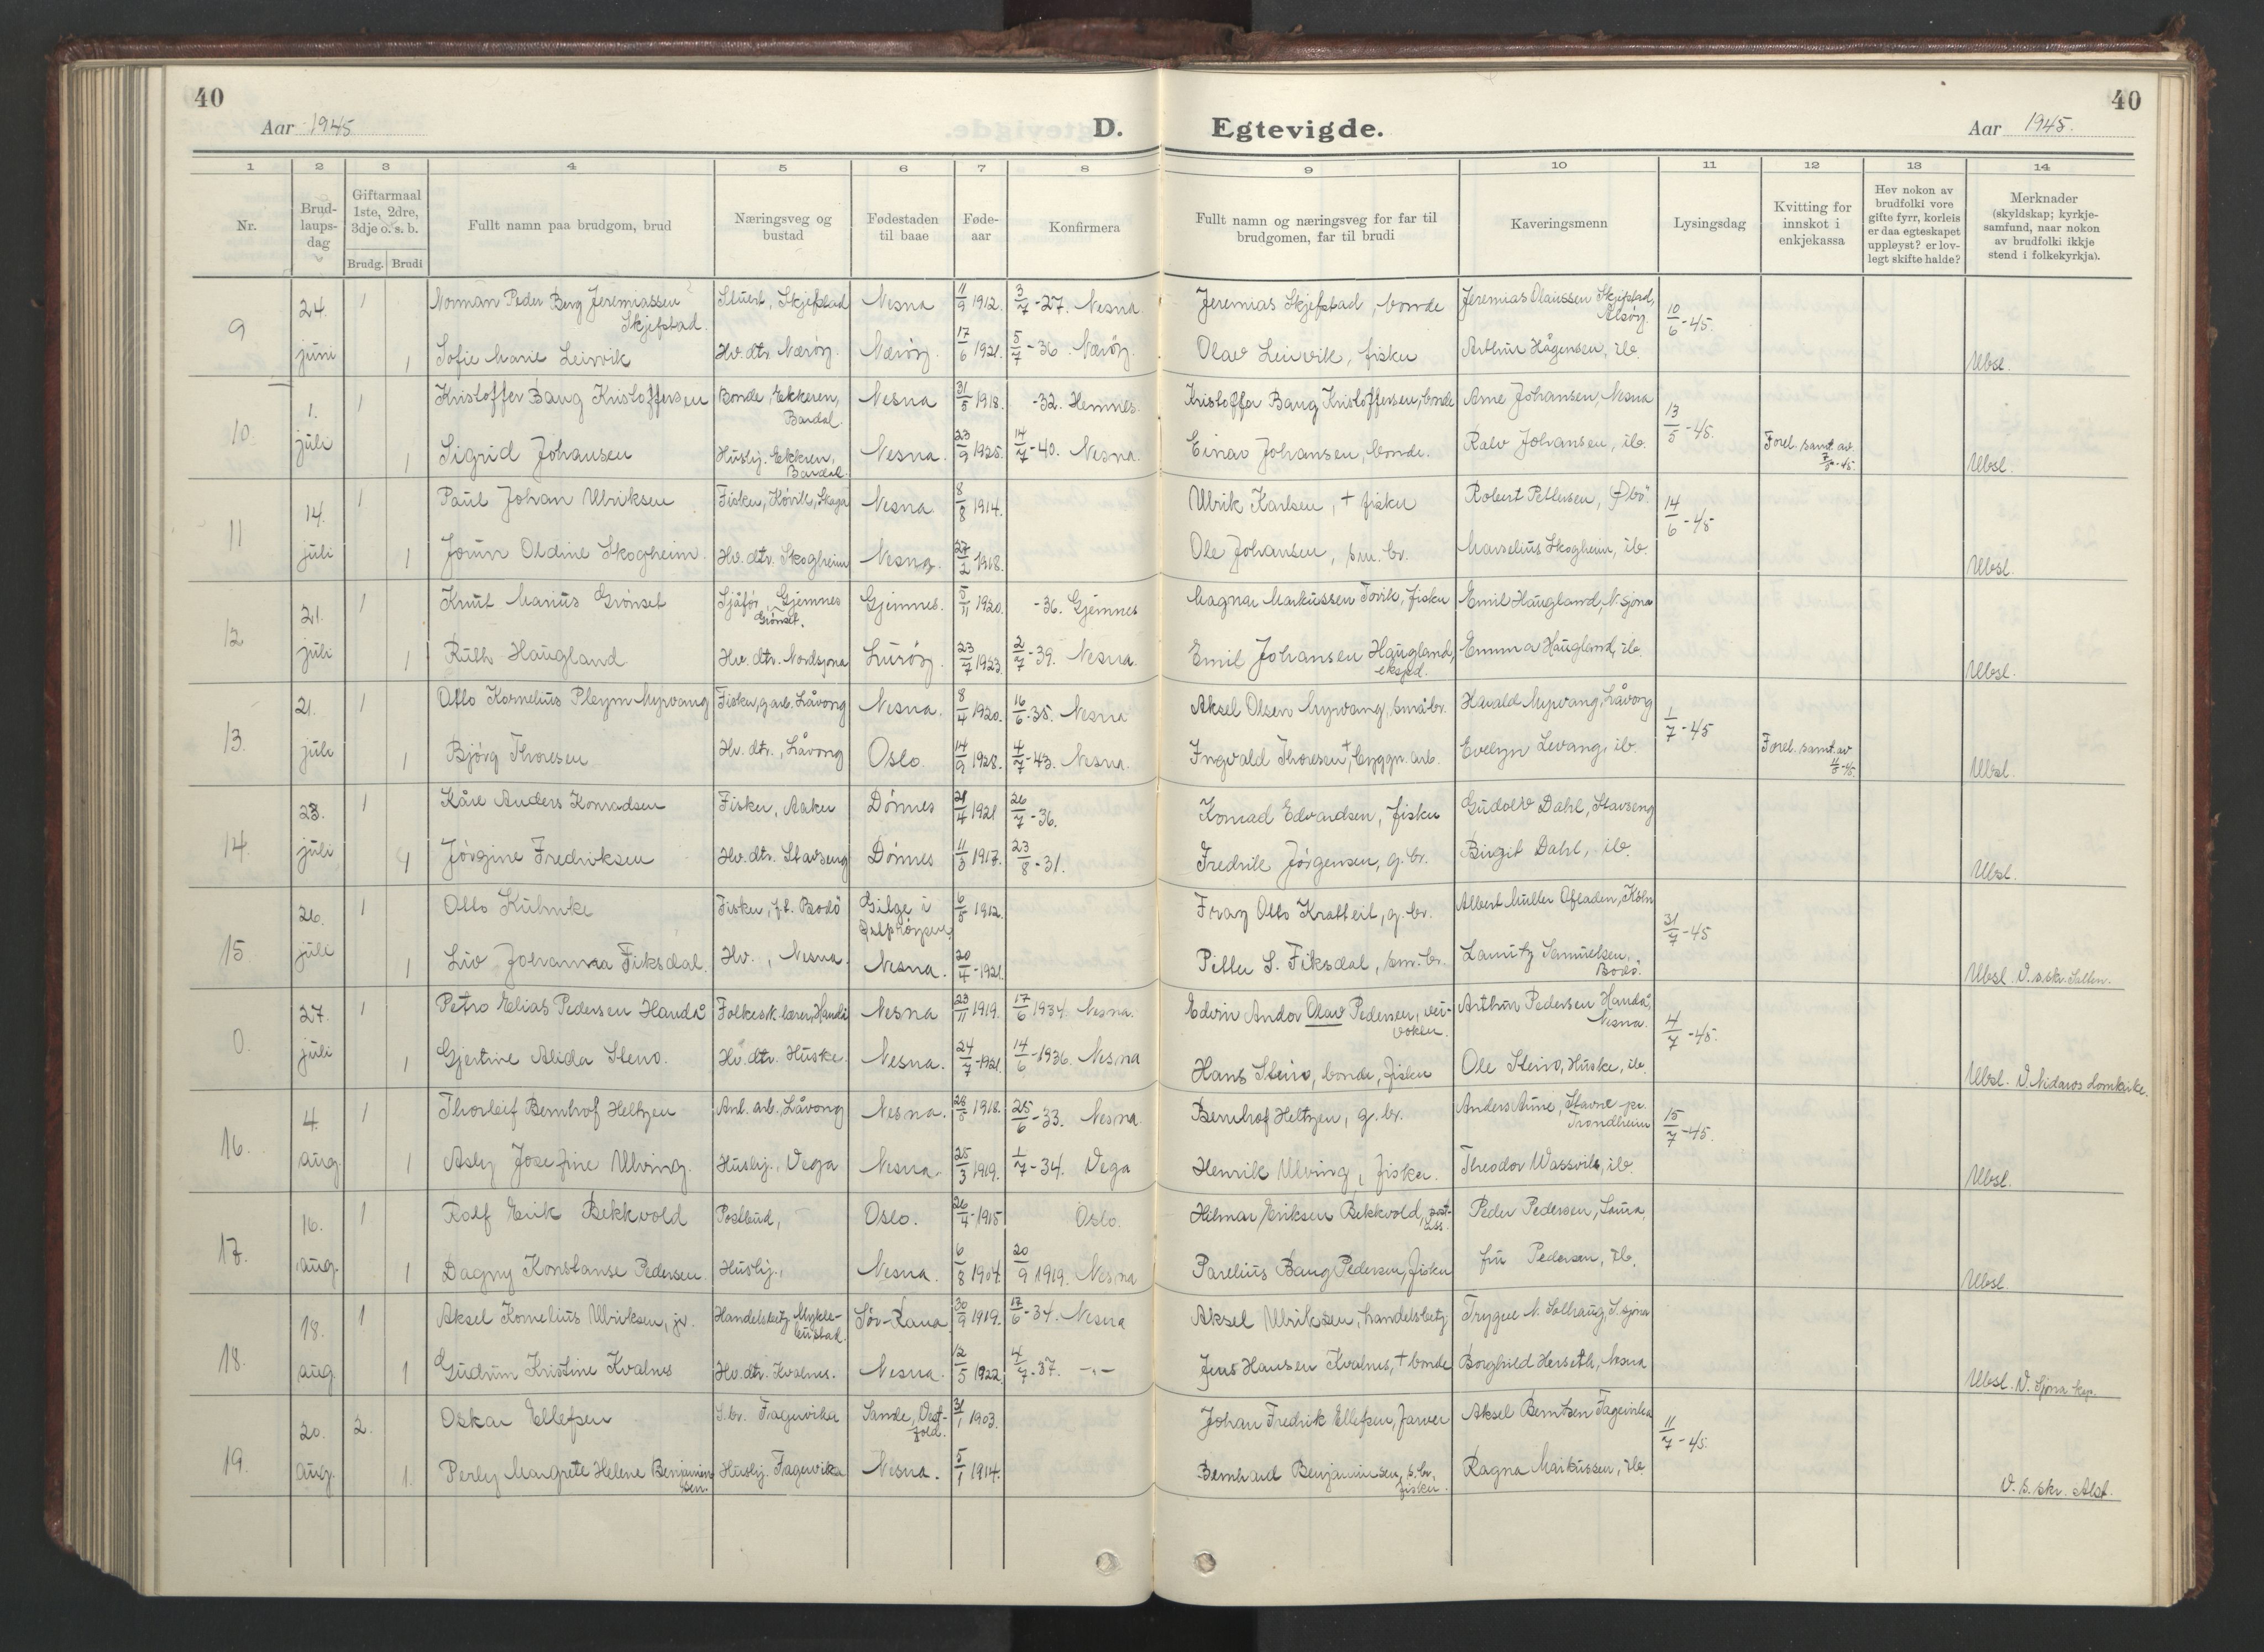 40
Aar 1945
D.
Egtevigde.
Aar 1945.
40
1 2 3 4 5 6 7 8 9 10 11 12 13 14
Nr.
Brud-
laups-
dag
Giftarmaal
1ste, 2dre,
3dje o. s. b.
Brudg. Brudi
Fullt namn paa brudgom, brud
Næringsveg og
bustad
Fødestaden
til baae
Føde-
aar
Konfirmera
Fullt namn og næringsveg for far til
brudgomen, far til brudi
Kaveringsmenn
Lysingsdag
Kvitting for
innskot i
enkjekassa
Hev nokon av
brudfolki vore
gifte fyrr, korleis
er daa egteskapet
uppløyst? er lov-
legt skifte halde?
Merknader
(skyldskap; kyrkje-
samfund, naar nokon
av brudfolki ikkje
stend i folkekyrkja).
9 24. juni 1 Norman Peder Berg Jeremiassen Skjefstad. Stuert, Skjefstad Nesna 11/9 1912. 3/7-27. Nesna. Jeremias Skjefstad, bonde Jeremias Olaussen Skjefstad, Alsøy. 10/6-45.
1 Sofie Marie Leirvik Hv. dtr. Nærøy. Nærøy. 17/6 1921. 5/7-36. Nærøy. Olav Leirvik, fisker Arthur Hågensen, ib. Ubsl.
10. 1. juli 1 Kristoffer Baug Kristoffersen Bonde, Ekkeren, Bardal. Nesna 31/5 1918. -32. Hemnes. Kristoffer Baug Kristoffersen, bonde Arne Johansen, Nesna 13/5-45.
1 Sigrid Johansen Huslij. Ekkren, Bardal. Nesna. 23/9 1925. 14/7-40. Nesna. Einar Johansen, bonde. Ralv Johansen, ib. Forel. samt. av 7/6-45. Ubsl.
11 14. juli 1 Paul Johan Ulriksen Fisker, Kóvik, Skaga Nesna 8/8 1914. Ulrik Karlsen, + fisker Robert Pettersen, 14/6-45
1 Jorun Oldine Skogheim. Hv. dtr. Skogheim Nesna. 27/2 1918. Ole Johansen, sm. br. Marselius Skogheim, ib. Ubsl.
12 21. juli 1 Knut Marius Grónset Sjåfór, Gjemnes Grónset. Gjemnes. 5/11 1920. -36. Gjemnes Magnar Markussen Torvik, fisker Emil Haugland, N. sjona
1 Ruth Haugland Hv. dtr. Nordsjona Lurøy. 23/7 1923. 2/7-39. Nesna. Emil Johansen Haugland, eksped. Emma Haugland, ib. Ubsl.
13. 21. juli 1 Otto Kornelius Pleym Myrvang Fisker, g. arb. Låvong Nesna. 8/4 1920. 16/6-35. Nesna Aksel Olsen Myrvang, småbr. Harald Myrvang, Låvong 1/7-45
1 Bjórg Thoresen Hv. dtr., Låvong Oslo. 14/9 1928. 4/7-43. Nesna. Ingvald Thoresen +, byggn. arb. Evelyn Levang, ib. Forel. samt. av -45. Ubsl.
14. 23. juli 1 Kåre Anders Konradsen Fisker, Aaker Dónnes 4 1921 26/7-36. Konrad Edvardsen, fisker Gudolv Dahl, Stavseng
1 Jórgine Fredriksen Hv. dtr. Stavseng Dónnes 11/3 1917. 23/8-31. Fredrik Jórgensen, g. br. Birgit Dahl, ib. Ubsl.
15. 26. juli 1 Otto Kuhnke Fisker, f.t. Bodó Gilge i 6/5 1912. Otto Kratteit, g. br. Albert Müller Opladen, Köln 31/7-45
1 Liv Johanna Fiksdal. Hv., Nesna. Nesna. 20/4-1921. Petter S. Fiksdal, sm. br. Lauritz Samuelsen, Bodó. Ubsl. V. s. skr. Salten.
0. 27. juli 1 Petro Elias Pedersen Handå Folkesk. lærer, Handå Nesna 23/11 1919. 17/6 1934. Nesna. Edvin Andor Olav Pedersen, vei-vokter Arthur Pedersen Handå, Nesna. 4/7-45.
1 Gjertine Alida Steiro. Hv. dtr. Huske. Nesna. 24/7-1921. 14/6-1936. Nesna Hans Steiro, bonde, fisker Ole Steiro, Huske, ib. Ubsl. V. Nidaros domkirke.
16. 4. aug. 1 Thorleif Bernhof Heltzen Anl. arb., Låvong Nesna. 28/5 1918. 25/6-33. Nesna. Bernhof Heltzen, g. br. Anders Aune, Stavne pr. Trondheim 15/7-45.
1 Asly Josefine Ulving. Huslij., Vega Nesna. 25/3 1919. 1/7-34. Vega Henrik Ulving, fisker. Theodor Wassvik, ib. Ubsl.
17. 16. aug. 1 Rolf Erik Bekkvold Postbud, Oslo. 26/4-1915 Oslo. Hilmar Eriksen Bekkvold, Peder Pedersen, Saura,
1 Dagny Konstanse Pedersen. Huslij., Nesna. 6/8 1904. 20/9 1919. Nesna Parelius Baug Pedersen, fisker fru Pedersen, ib. Ubsl.
18. 18. aug. 1 Aksel Kornelius Ulriksen, jr. Handelsbetj. Mykle-bustad. Sór-Rana 30/9 1919. 17/6-34. Nesna Aksel Ulriksen, handelsbetj. Trygve N. Solhaug, S. sjona
1 Gudrun Kristine Kvalnes Hv. dtr. Kvalnes. Nesna. 12/5 1922. 4/7-37. -„- Jens Hansen Kvalnes, + bonde Borghild Herseth, Nesna Ubsl. V. Sjona kap.
19. 20. aug. 2. Oskar Ellefsen S. br. Fagervika Sande, Vest-fold. 31/1 1903. Johan Fredrik Ellefsen, farver Aksel Berntsen Fagervika 11/7-45.
1. Perly Margrete Helene Benjamin-sen. Huslij. Fagervika Nesna. 5/1 1914. Bernhard Benjaminsen, s. br., fisker. Ragna Markussen, ib. V. s. skr. Alst.